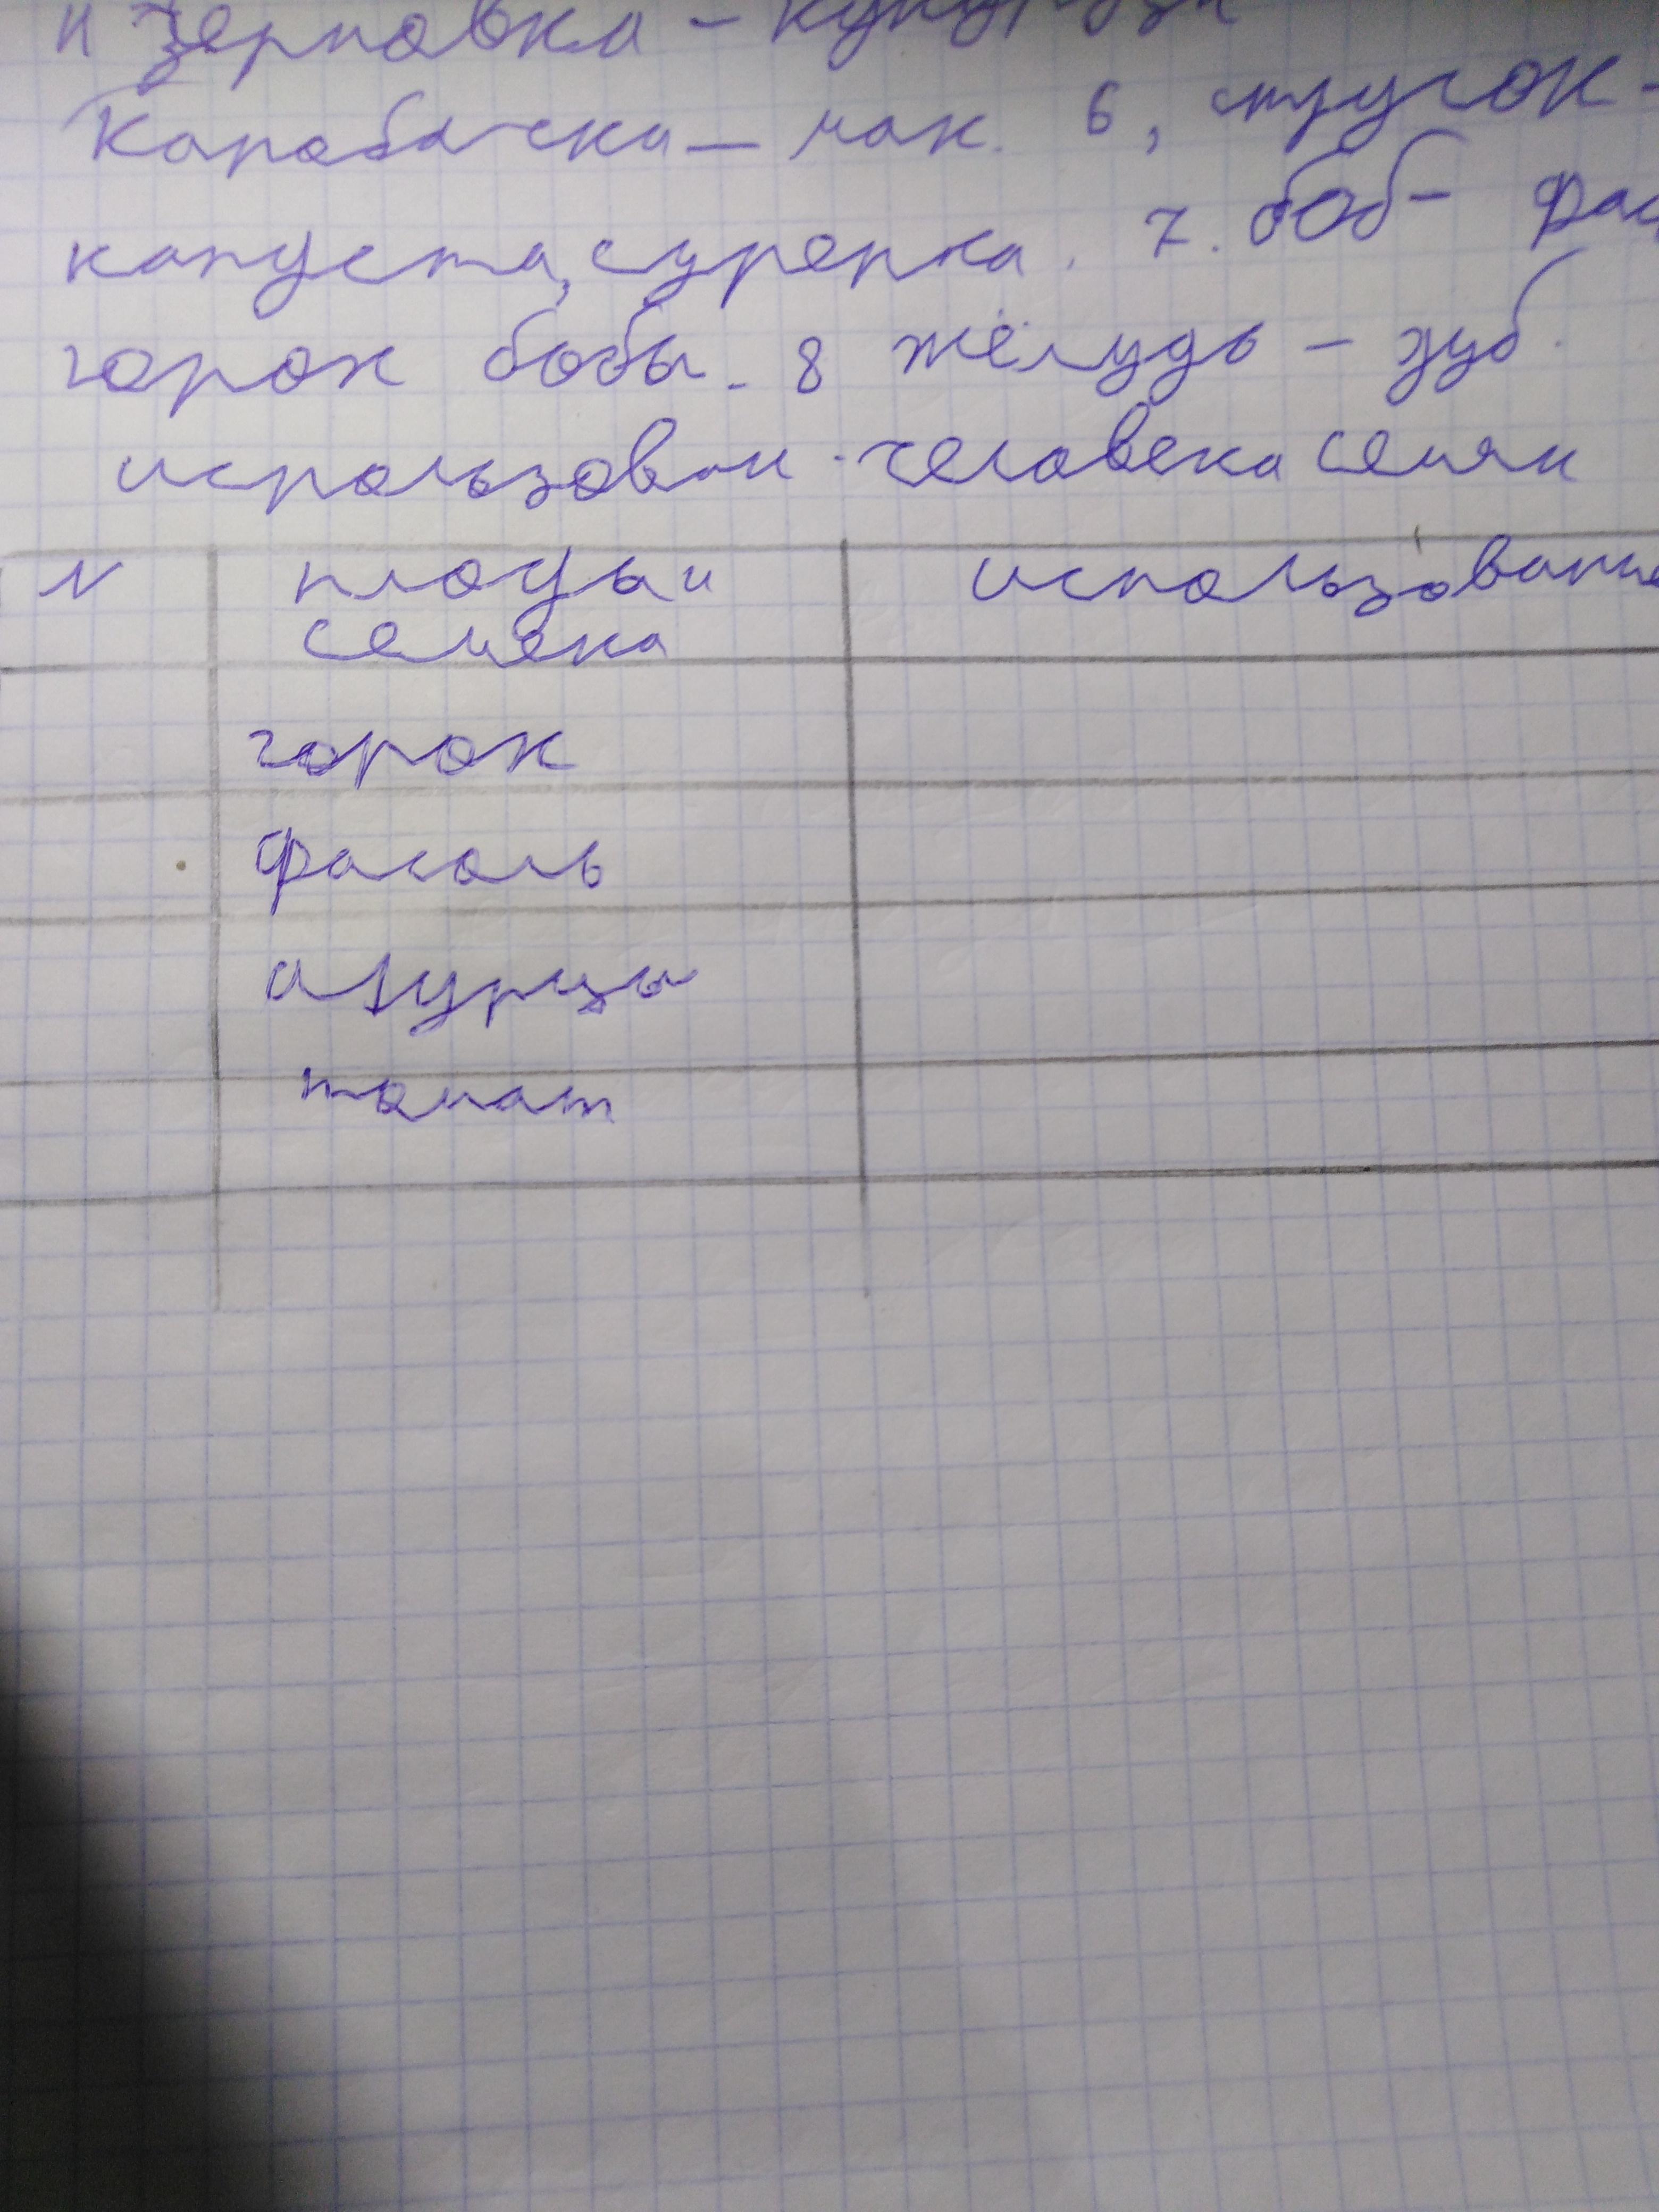 и зерновка – кукуруза
Коробочка – мак. 6, стручок -
капуста, сурепка. 7. боб – фас
горох бобы. 8 жёлудь – дуб.
использован. человека семян
N плоды и использование
семена
горох
фасоль
агурцы
томат